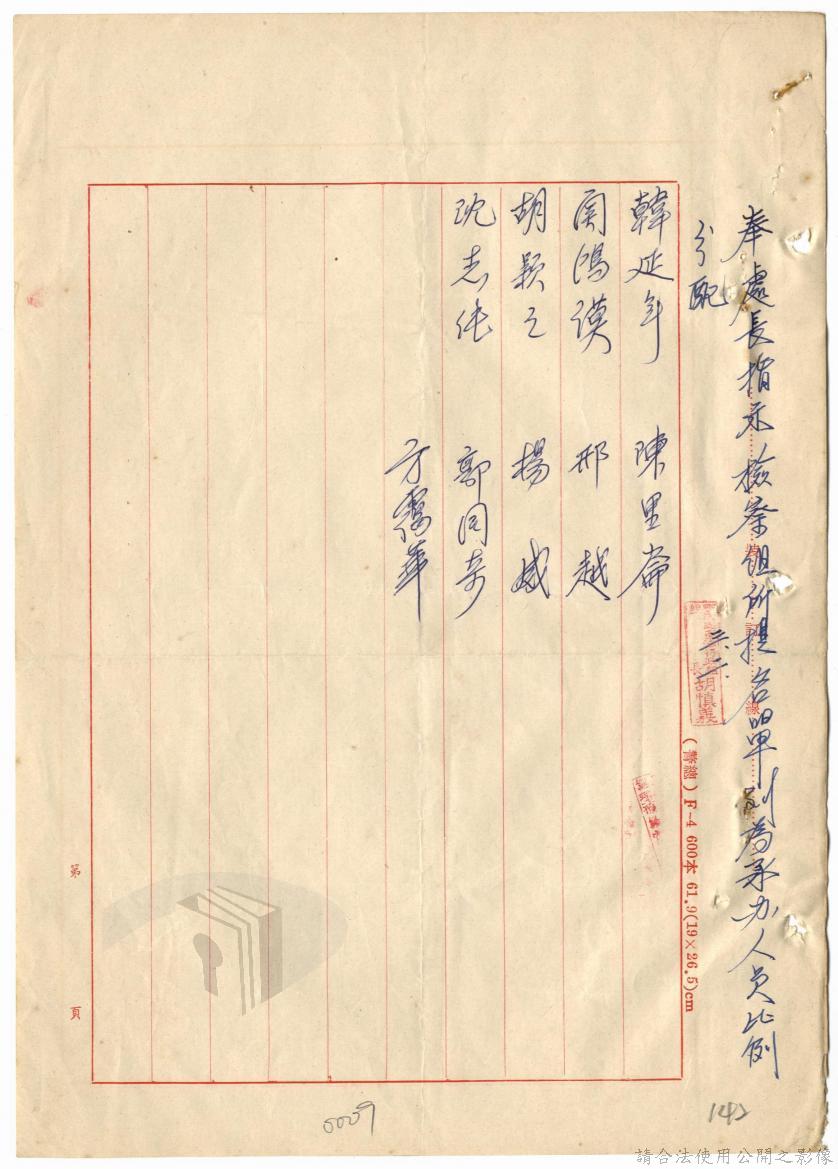 奉處長指示檢察組所提名單別為承办人員比例
分配
三.二.
胡慎義
裝訂線
(警總) F-4 600本 61.9(19×26.5)cm
韓延年 陳里崙
鴻漠 邢越
胡穎之 楊威
沈志純 郭同奇
方震華
第 頁
0029
142
請合法使用公開之影像